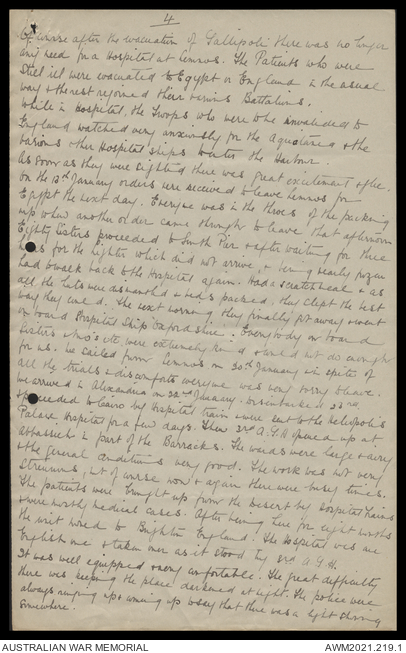 4
Of course after the evacuation of Gallipoli there was no longer
any need for a Hospital at Lemnos. The Patients who were
still ill were evacuated to Egypt or England in the usual
way & the rest rejoined their various Battalions.
While in Hospital, the Troops who were to be invalided to
England watched very anxiously for the Aquitania & the
various other Hospital ships to enter the Harbour.
As soon as they were sighted there was great excitement & glee.
On the 13th January orders were received to leave Lemnos for
Egypt the next day. Everyone was in the throes of the packing
up when another order came through to leave that afternoon
Eighty Sisters proceeded to South Pier & after waiting for three
hours for the lighter which did not arrive, & being nearly frozen
had to walk back to the Hospital again. Had a scratch meal & as
all the tents were dismantled & beds packed, they slept the best
way they could. The next morning they finally got away & went
on board Hospital Ship Oxfordshire. Everybody on board
Sisters & M.O's etc, were extremely kind & could not do enough
for us. We sailed from Lemnos on 20th January in spite of
all the trials & discomforts everyone was very sorry to leave.
We arrived in Alexandria on 22nd January. Disembarked 23rd
& proceeded to Cairo by Hospital train & were sent to the Heliopolis
Palace Hospital for a few days. Then 3rd A.G.H opened up at
Abbassieh in part of the Barracks. The wards were large & airy
& the general conditions very good. The work was not very
strenuous, but of course now & again there were busy times.
The patients were brought up from the desert by Hospital trains
& were mostly medical cases. After being here for eight months
the unit moved to Brighton England. The Hospital was an
English one & taken over as it stood by 3rd A.G.H.
It was well equipped & very comfortable. The great difficulty
there was keeping the place darkened at night. The police were
always ringing up & coming up to say that there was a light shining
somewhere.
AUSTRALIAN WAR MEMORIAL
AWM2021.219.1